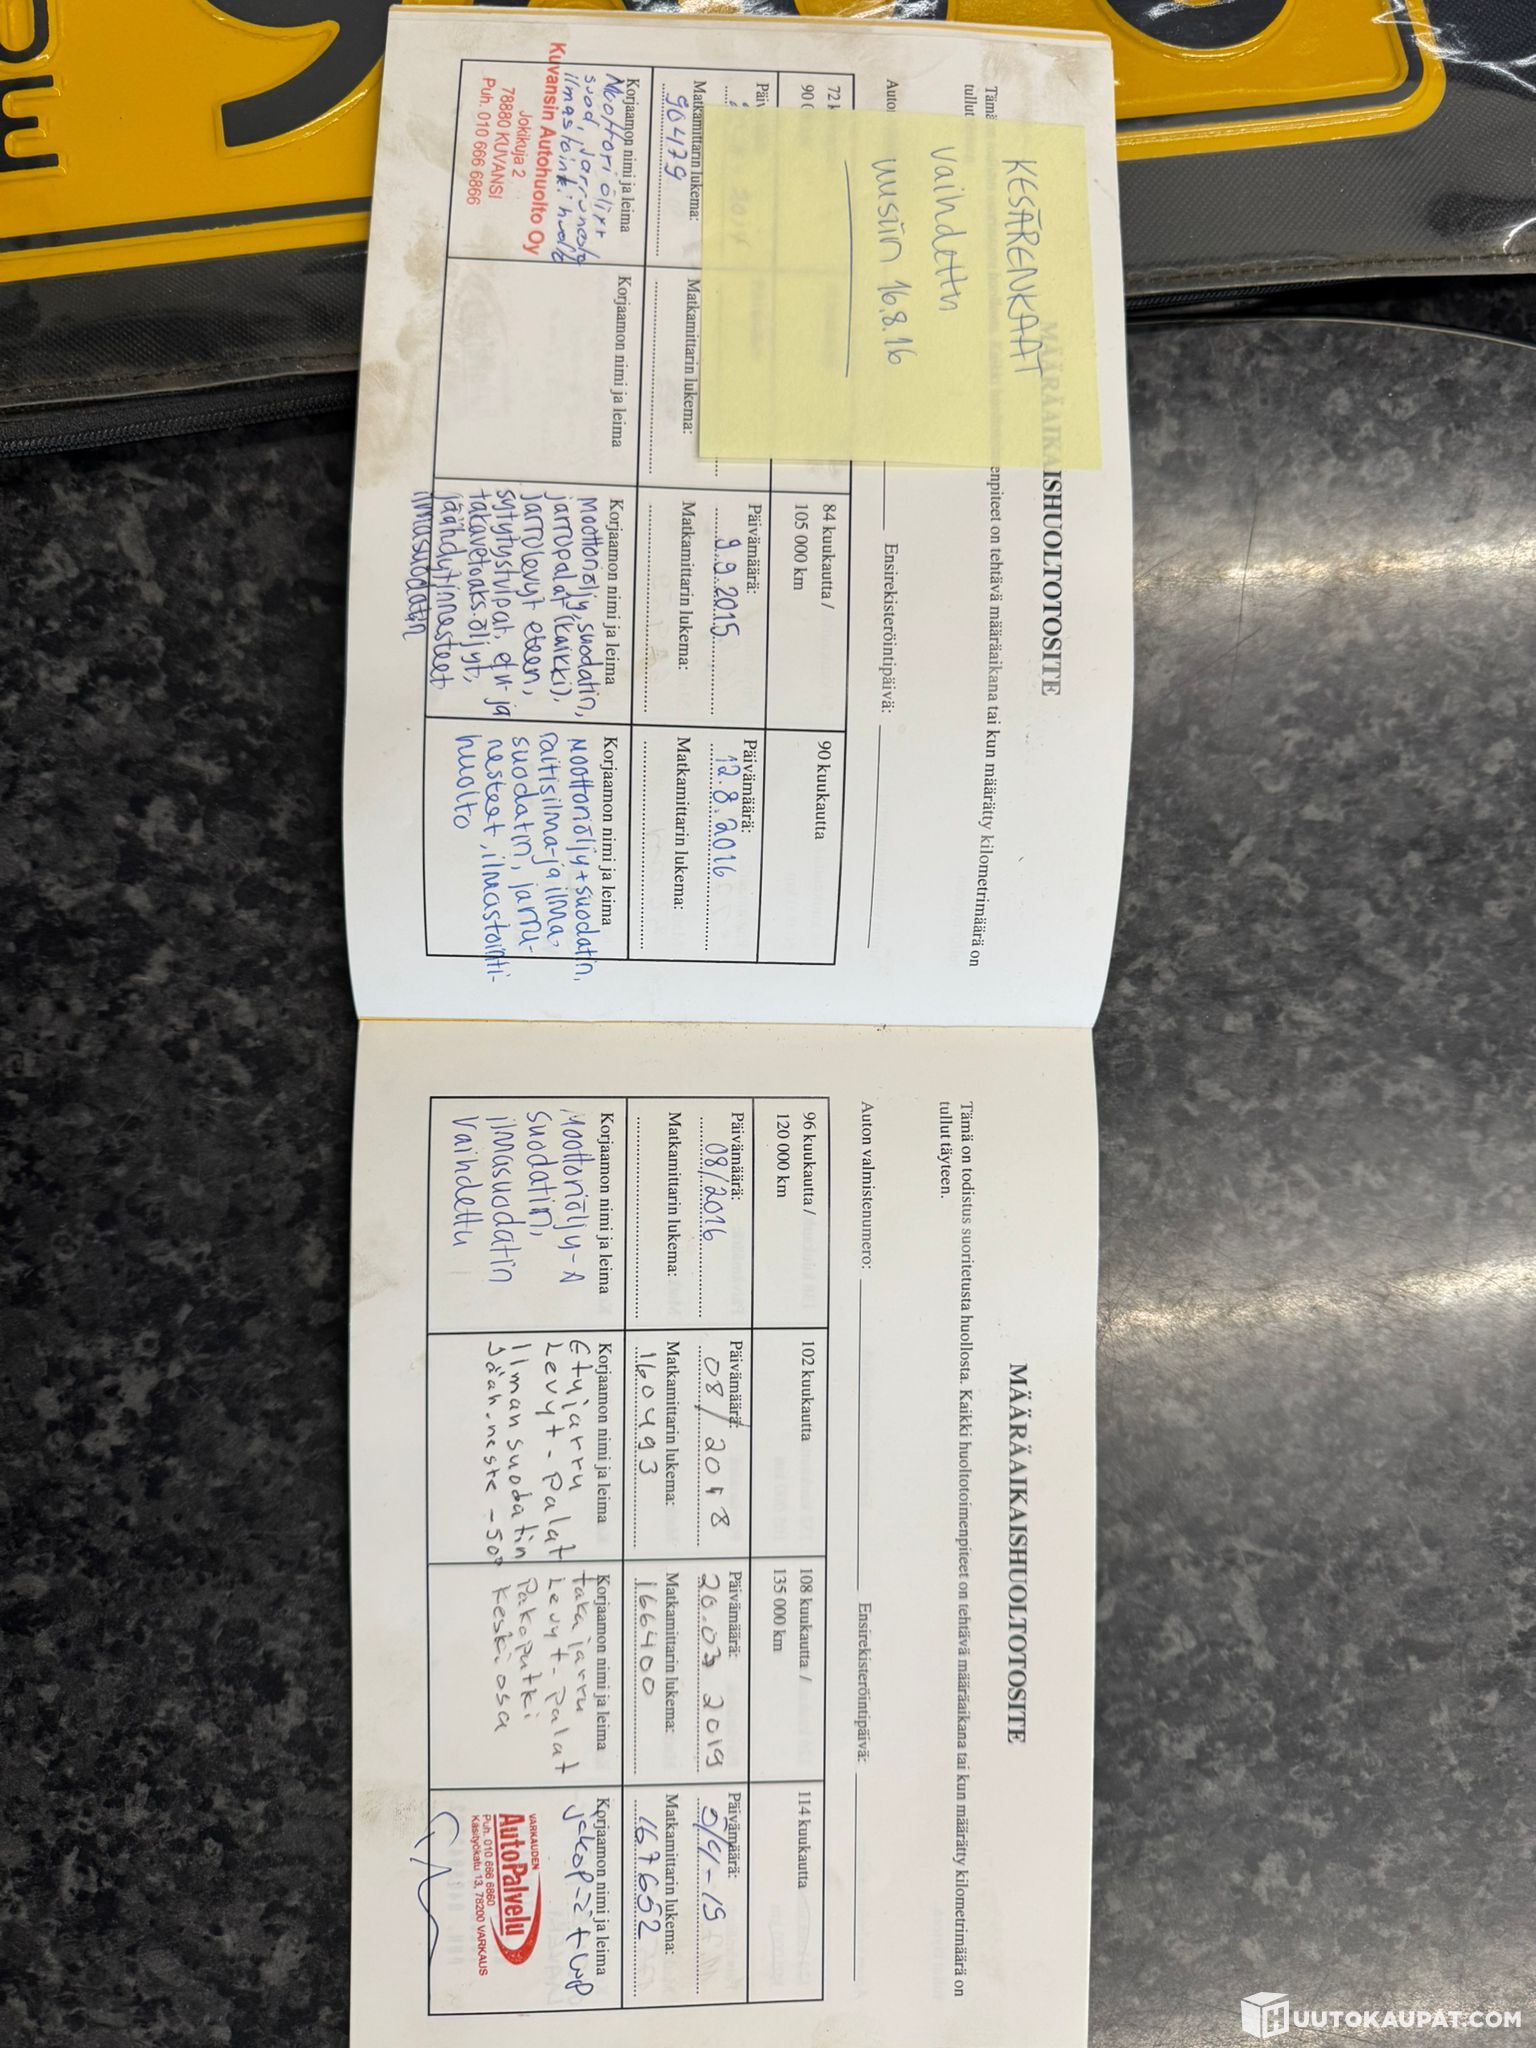 KESÄRENKAAT
vaihdettu
uusiin 16.8.16
MÄÄRÄAIKAISHUOLTOTOSITE
Tämä
enpiteet on tehtävä määräaikana tai kun määrätty kilometrimäärä on
tullut
Ensirekisteröintipäivä:
Matkamittarin lukema:
90479
Korjaamon nimi ja leima
Moottoriöljyt
suod, Jarruneste
ilmastoinki huolto
Kuvansin Autohuolto Oy
Jokikuja 2
78880 KUVANSI
Puh. 010 666 6866
Matkamittarin lukema:
Korjaamon nimi ja leima
84 kuukautta /
105 000 km
Päivämäärä:
9.9.2015
Matkamittarin lukema:
Korjaamon nimi ja leima
Moottoriöljy, suodatin,
jarrupalat (kaikki),
jarrulevyt eteen,
sytytystulpat, etu- ja
takavetoaks.öljyt,
jäähdytinnesteet,
ilmasuodatin
90 kuukautta
Päivämäärä:
12.8.2016
Matkamittarin lukema:
Korjaamon nimi ja leima
Moottoriöljy + suodatin,
raitisilma- ja ilma-
suodatin, jarru-
nesteet, ilmastointi-
huolto
MÄÄRÄAIKAISHUOLTOTOSITE
Tämä on todistus suoritetusta huollosta. Kaikki huoltotoimenpiteet on tehtävä määräaikana tai kun määrätty kilometrimäärä on
tullut täyteen.
Auton valmistenumero:
Ensirekisteröintipäivä:
96 kuukautta /
120 000 km
Päivämäärä:
08/2016
Matkamittarin lukema:
Korjaamon nimi ja leima
Moottoriöljy-
suodatin,
ilmasuodatin
vaihdettu
102 kuukautta
Päivämäärä:
08/2018
Matkamittarin lukema:
160493
Korjaamon nimi ja leima
Etujarru
Levyt-Palat
Ilmansuodatin
Jääh.neste -50°
108 kuukautta /
135 000 km
Päivämäärä:
20.03 2019
Matkamittarin lukema:
166400
Korjaamon nimi ja leima
takajarru
Levyt-palat
Pakoputki
keskiosa
114 kuukautta
Päivämäärä:
Matkamittarin lukema:
167652
Korjaamon nimi ja leima
VARKAUDEN
AutoPalvelu
Puh. 010 666 6860
Käsityökatu 13, 78200 VARKAUS
HUUTOKAUPAT.COM